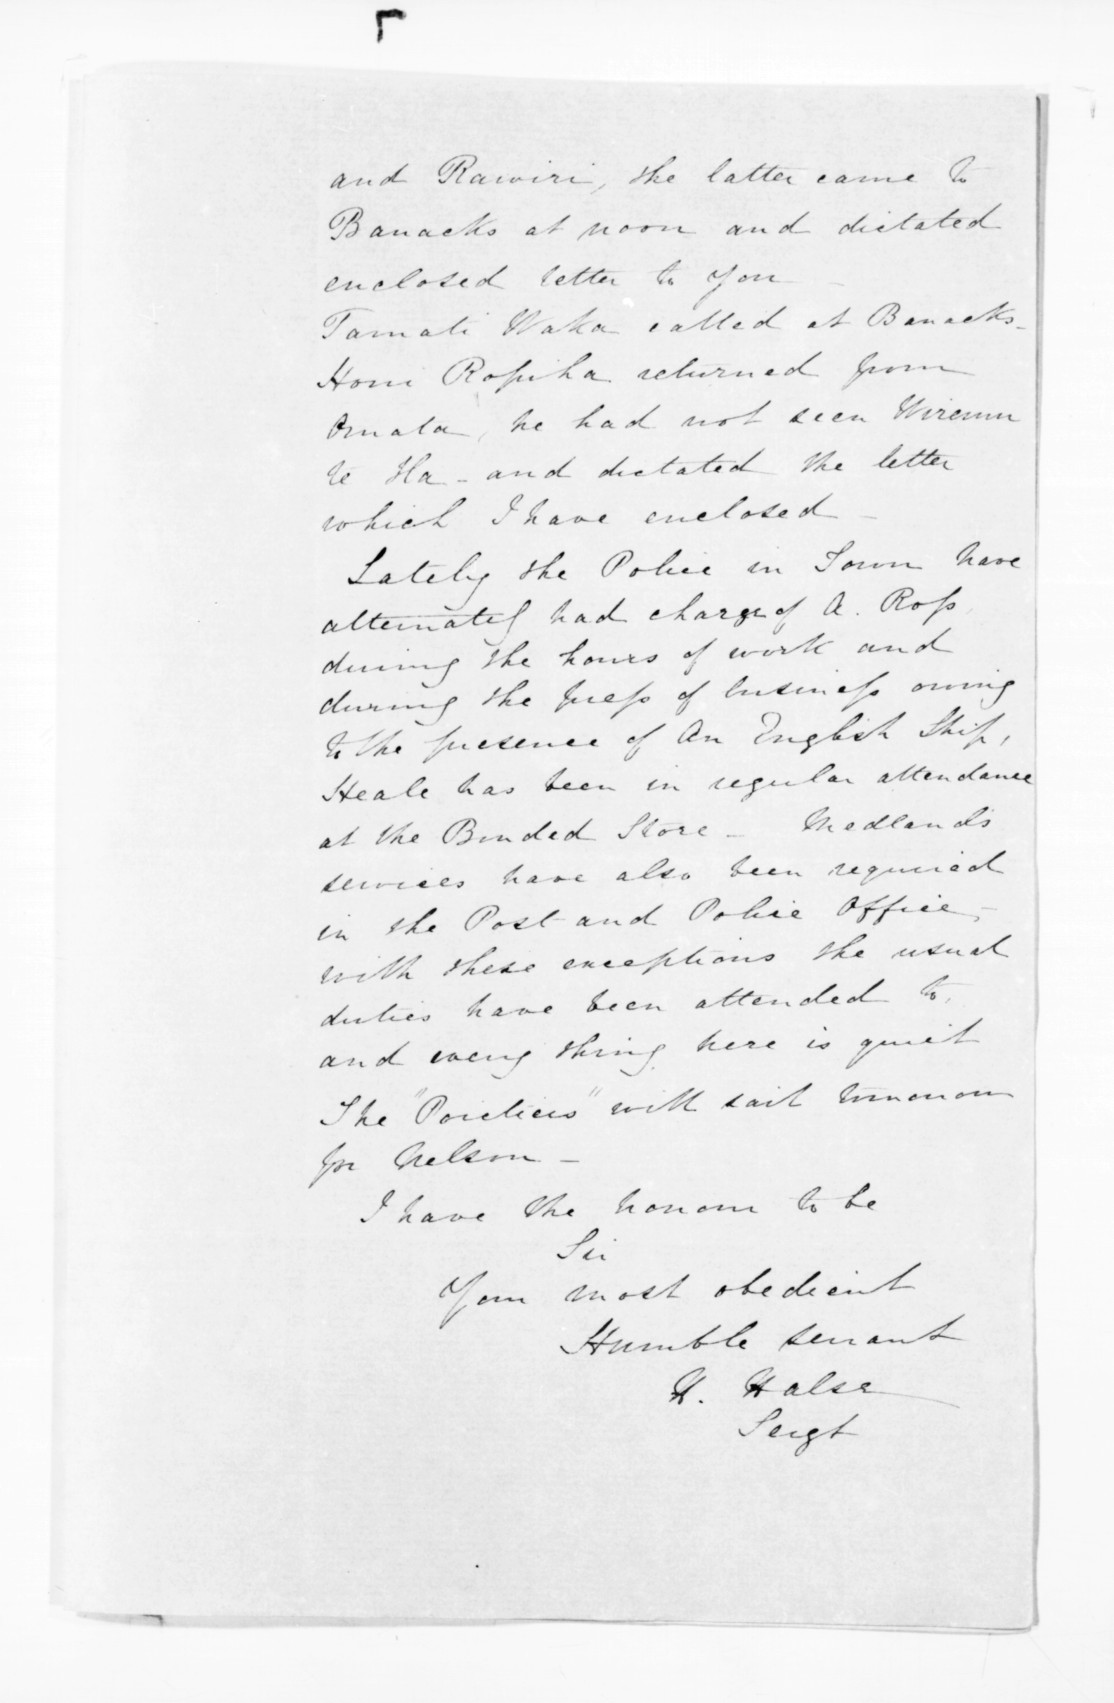 and Rawiri, the latter came to
Barracks at noon and dictated
enclosed letter to you –
Tamati Waka called at Barracks –
Honi Ropiha returned from
Omata, he had not seen Wiremu
te Ha – and dictated the letter
which I have enclosed –
Lately the Police in Town have
alternately had charge of A. Ross,
during the hours of work and
during the press of business owing
to the presence of An English Ship,
Heale has been in regular attendance
at the Bonded Store – Medland's
services have also been required
in the Post and Police Office,–
with these exceptions the usual
duties have been attended to,
and every thing here is quiet
The "Poictiers" will sail tomorrow
for Nelson –
I have the honour to be
Sir
Your most obedient
Humble servant
H. Halse
Sergt